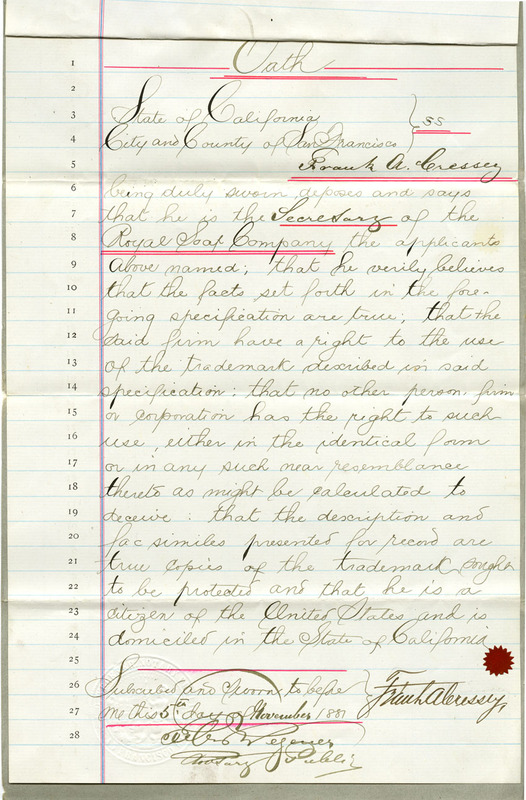 1 Oath
2
3 State of California } ss
4 City and County of San Francisco
5 Frank A. Cressey
6 being duly sworn, deposes and says
7 that he is the Secretary of the
8 Royal Soap Company the applicants
9 above named; that he verily believes
10 that the facts set forth in the fore-
11 going specification are true; that the
12 said firm have a right to the use
13 of the trademark described in said
14 specification; that no other person, firm
15 or corporation has the right to such
16 use, either in the identical form
17 or in any such near resemblance
18 thereto as might be calculated to
19 deceive: that the description and
20 fac similes presented for record are
21 true copies of the trademark sought
22 to be protected and that he is a
23 citizen of the United States and is
24 domiciled in the State of California
25
26 Subscribed and sworn to before } Frank A Cressey
27 me this 5th day of November 1881
28 Wegener
Notary Public